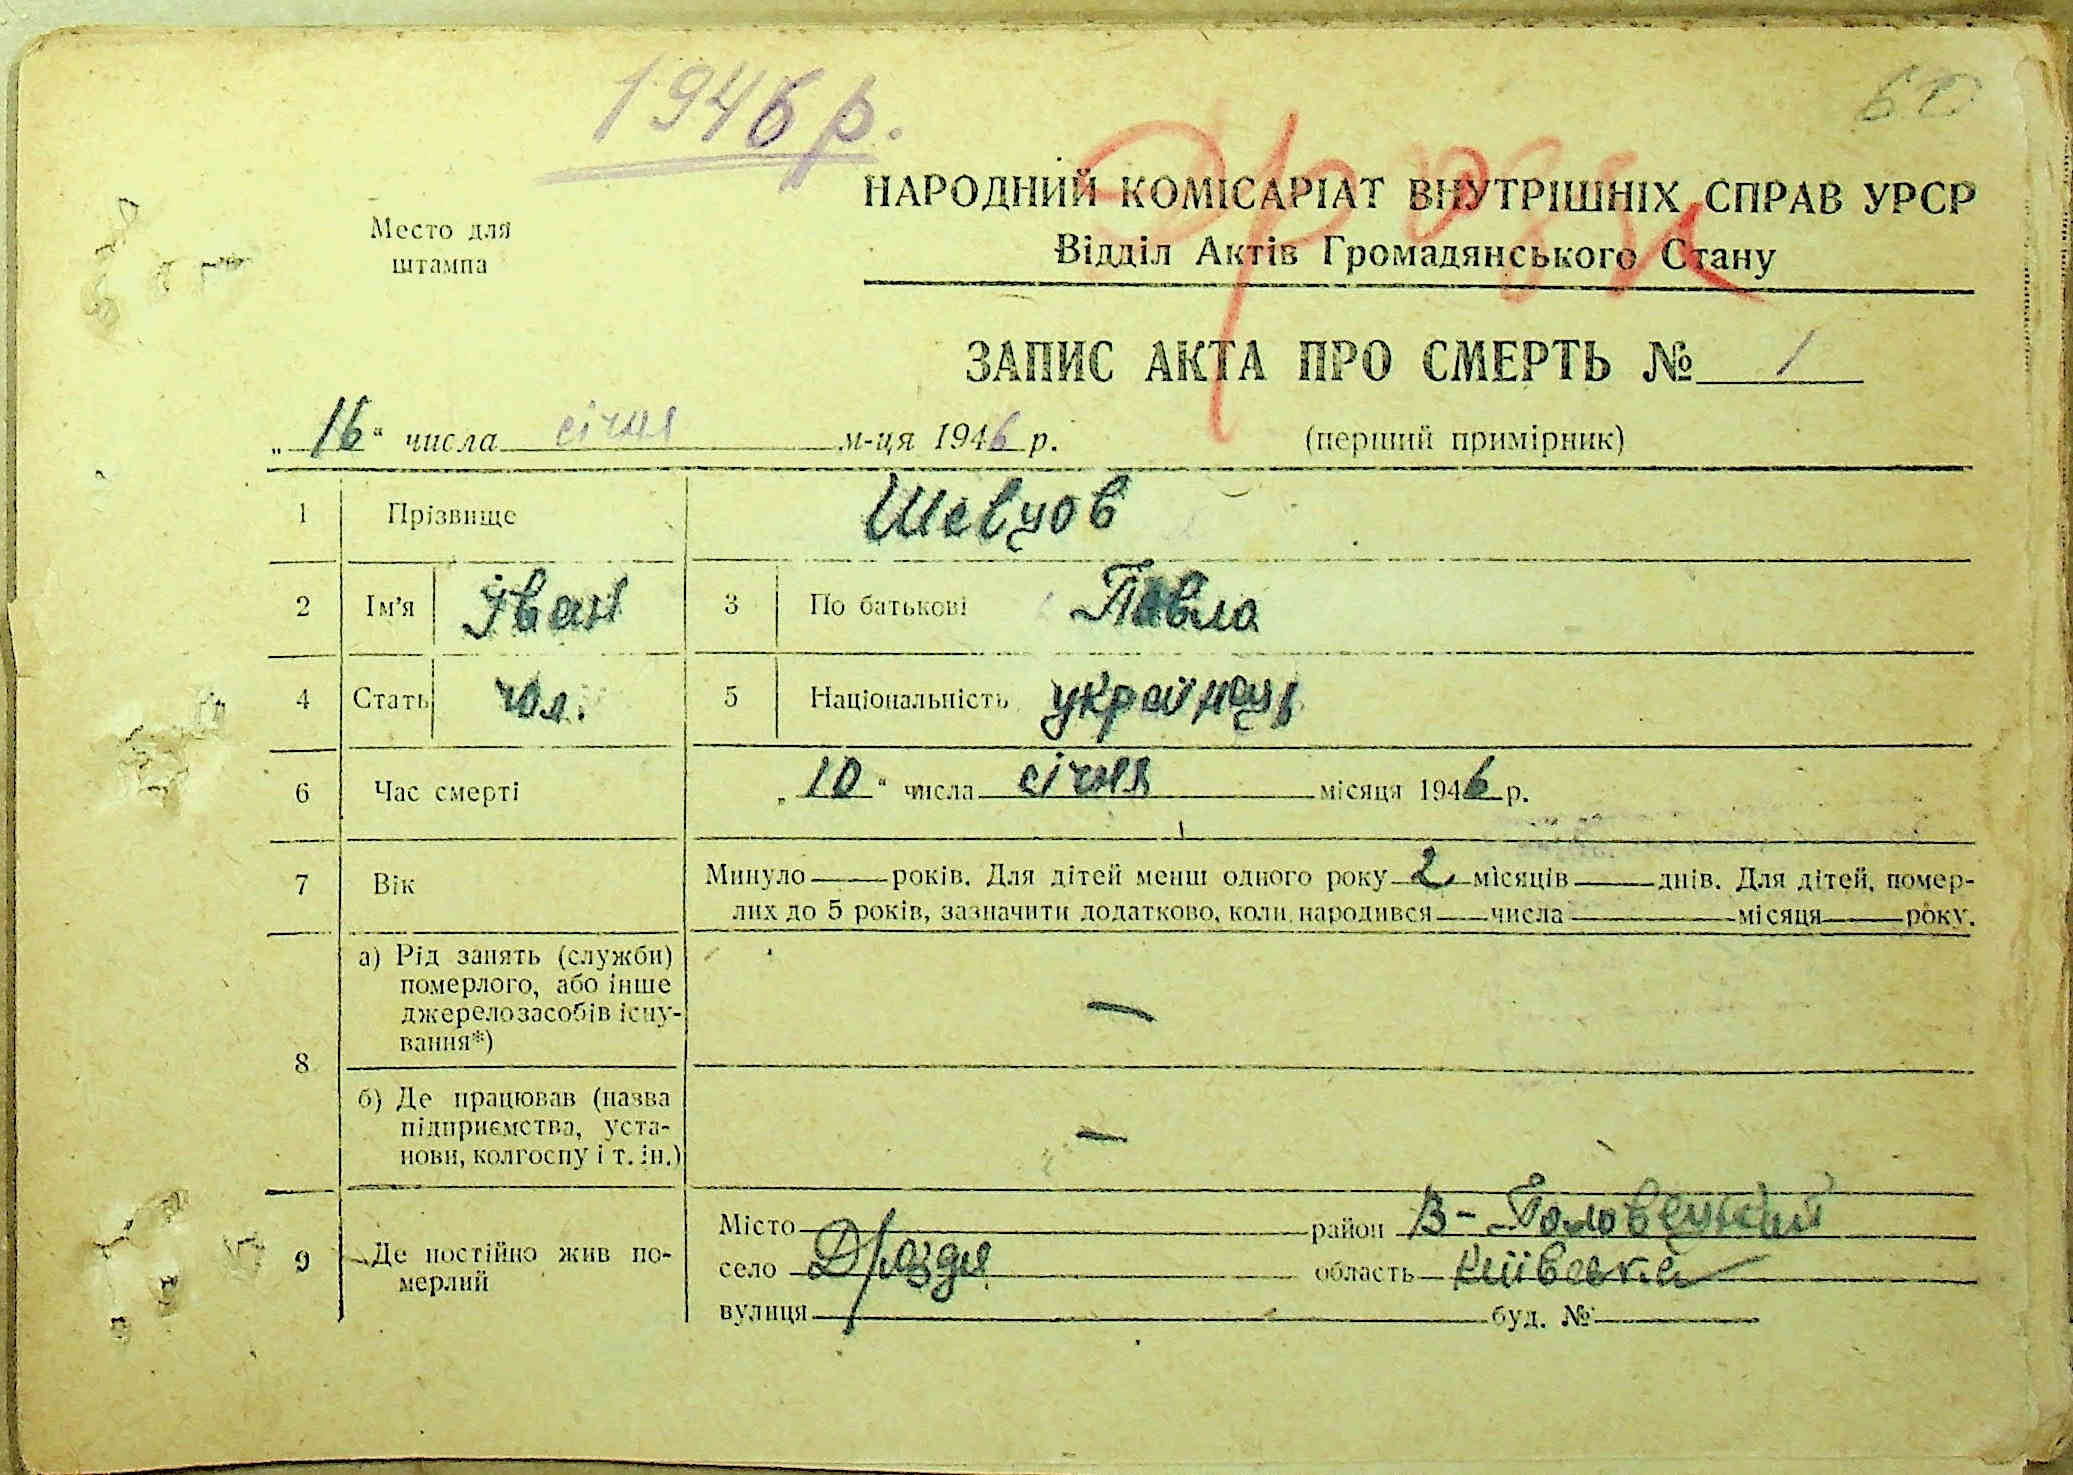 1946 р.
60
Место для
штампа
НАРОДНИЙ КОМІСАРІАТ ВНУТРІШНІХ СПРАВ УРСР
Відділ Актів Громадянського Стану
ЗАПИС АКТА ПРО СМЕРТЬ № 1
„16“ числа січня м-ця 1946 р.
(перший примірник)
1 Прізвище Шевцов
2 Ім’я Іван 3 По батькові Павла
4 Стать чол. 5 Національність українець
6 Час смерті „10“ числа січня місяця 1946 р.
7 Вік Минуло — років. Для дітей менш одного року 2 місяців — днів. Для дітей, помер-
лих до 5 років, зазначити додатково, коли народився — числа — місяця — року.
8 а) Рід занять (служби)
померлого, або інше
джерело засобів існу-
вання*) —
б) Де працював (назва
підприємства, уста-
нови, колгоспу і т. ін.) —
9 Де постійно жив по-
мерлий
Місто район В-Половецький
село Дрозди область Київська
вулиця буд. №